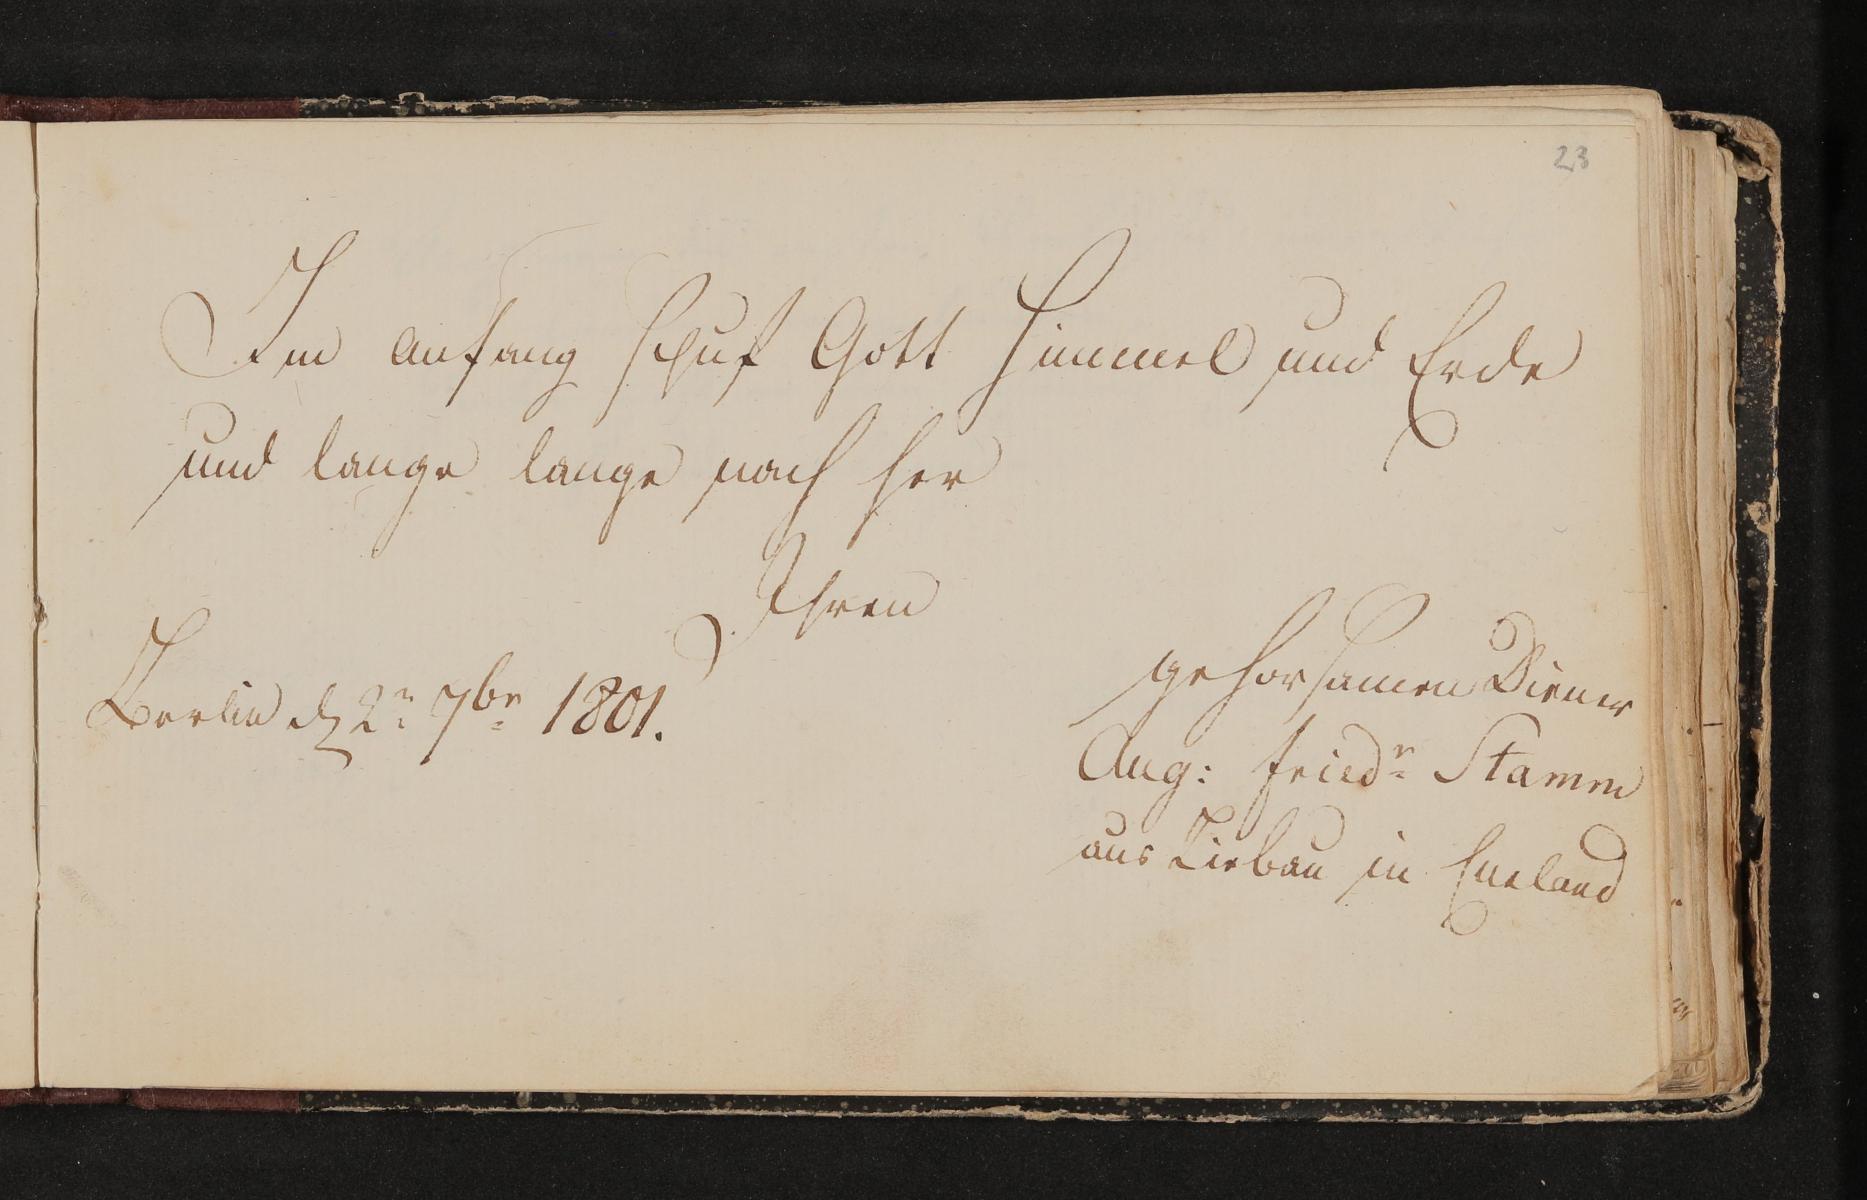 23
Im anfang schuf Gott Himmel und Erde
und lange lange nach her
Ihren
gehorsamen Diener
Berlin d 2n 7br 1801.
Aug: Friedr Stamm
aus Liebau in Curland